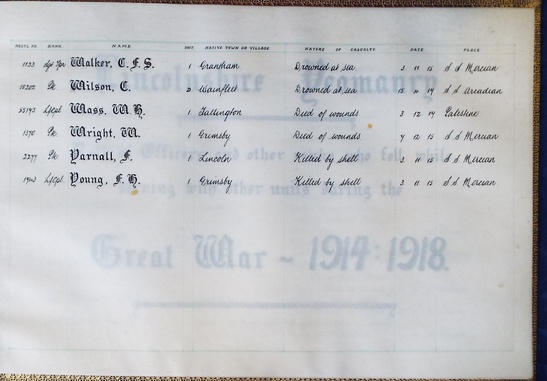 REGTL NO. RANK. NAME UNIT NATIVE TOWN OR VILLAGE NATURE OF CASUALTY DATE PLACE
Walker, C. F. S. 1 Grantham Drowned at sea 3 11 15 S.S. Mercian
Pte Wilson, C. 2 Wainfleet Drowned at sea 15 S.S. Arcadian
L/Cpl Wass, W. H. 1 Tallington Died of wounds 3 12 17 Palestine
1370 Pte Wright, W. 1 Grimsby Died of wounds 4 12 15 S.S. Mercian
2277 Pte Yarnall, F. 1 Lincoln Killed by shell 3 11 15 S.S. Mercian
L/Cpl Young, F. H. 1 Grimsby Killed by shell 3 11 15 S.S. Mercian
Lincolnshire Yeomanry
Officers and other who fell whilst
serving with other units during the
Great War ~ 1914:1918.